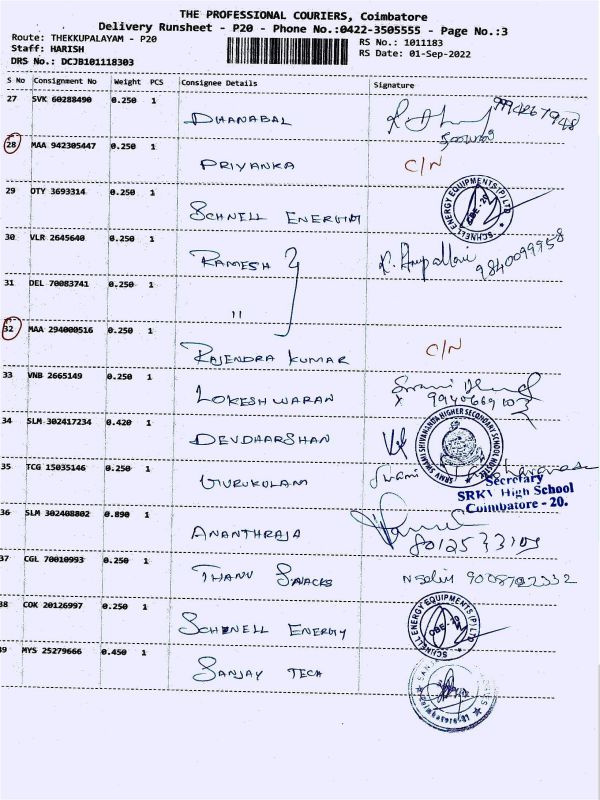 THE PROFESSIONAL COURIERS, Coimbatore
Delivery Runsheet - P20 - Phone No.:0422-3505555 - Page No.:3
Route: THEKKUPALAYAM - P20
RS No.: 1011183
Staff: HARISH
RS Date: 01-Sep-2022
DRS No.: DCJB101118303
S No Consignment No Weight PCS Consignee Details Signature
27 SVK 60288490 0.250 1 DHANABAL
28 MAA 942305447 0.250 1 PRIYANKA C/N
29 OTY 3693314 0.250 1 SCHNELL ENERGY
SCHNELL ENERGY EQUIPMENTS (P) LTD
CBE-20
30 VLR 2645640 0.250 1 RAMESH 9840099958
31 DEL 70083741 0.250 1 "
32 MAA 294000516 0.250 1 RAJENDRA KUMAR C/N
33 VNB 2665149 0.250 1 LOKESHWARAN
34 SLM 302417234 0.420 1 DEVDHARSHAN
35 TCG 15035146 0.250 1 GURUKULAM Swami
Secretary
SRKV High School
Coimbatore - 20.
36 SLM 302408802 0.890 1 ANANTHRAJA
37 CGL 70010993 0.250 1 THANU SNACKS
38 COK 20126997 0.250 1 SCHNELL ENERGY
SCHNELL ENERGY EQUIPMENTS (P) LTD
CBE-20
39 MYS 25279666 0.450 1 SANJAY TECH